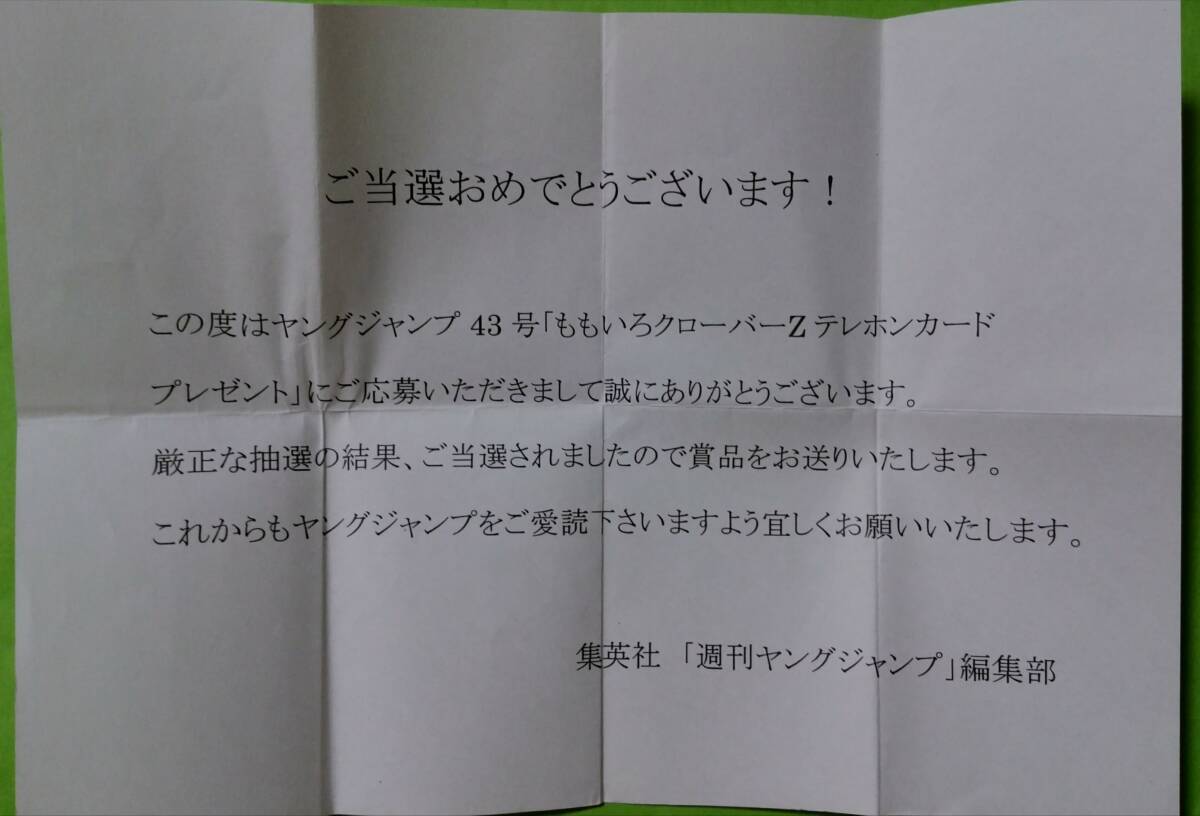 ご当選おめでとうございます！
この度はヤングジャンプ 43 号「ももいろクローバーZ テレホンカード
プレゼント」にご応募いただきまして誠にありがとうございます。
厳正な抽選の結果、ご当選されましたので賞品をお送りいたします。
これからもヤングジャンプをご愛読下さいますよう宜しくお願いいたします。
集英社 「週刊ヤングジャンプ」編集部